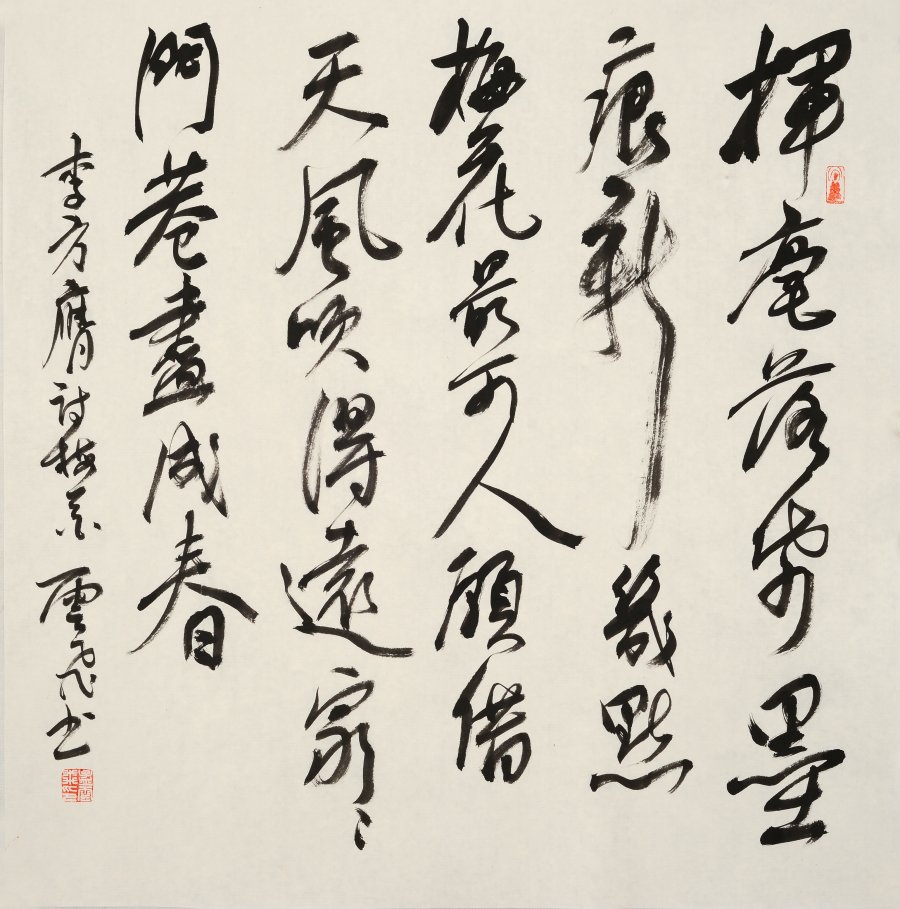 揮毫落帋墨
痕新幾點
梅花最可人願借
天風吹得遠家々
門巷盡成春
李方膺詩梅花 雲飛书